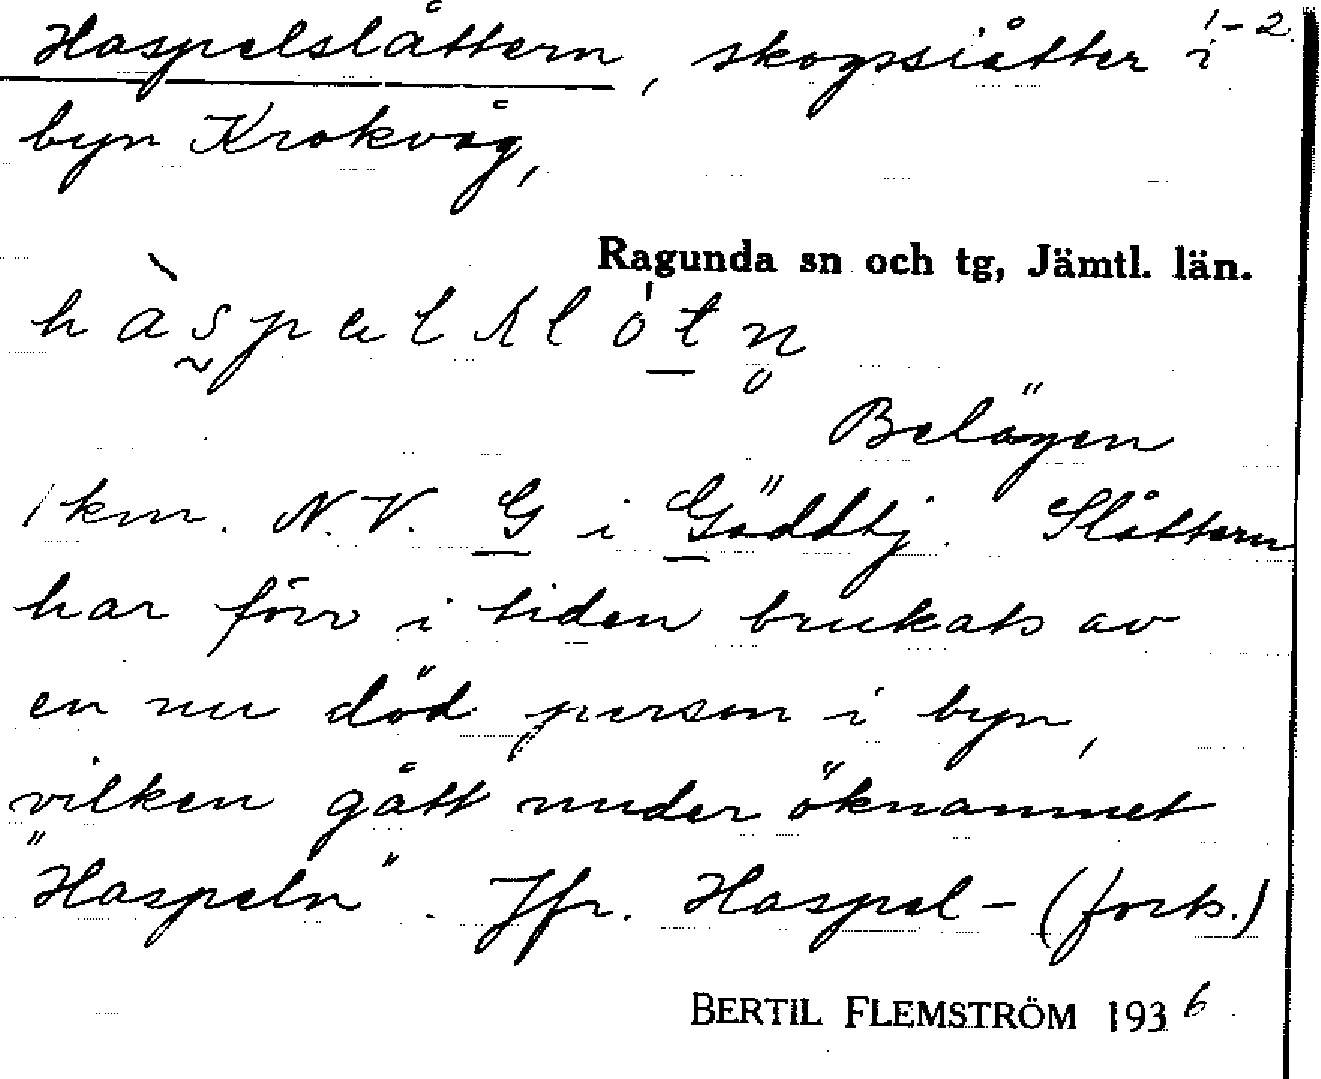 Haspelslåttern, skogsslåtter i 1-2.
byn Krokvåg,
Ragunda sn och tg, Jämtl. län.
Belägen
1 km. N.V. G i Gäddtj. Slåttern
har förr i tiden brukats av
en nu död person i byn,
vilken gått under öknamnet
"Haspeln". Jfr. Haspel- (forts.)
BERTIL FLEMSTRÖM 1936